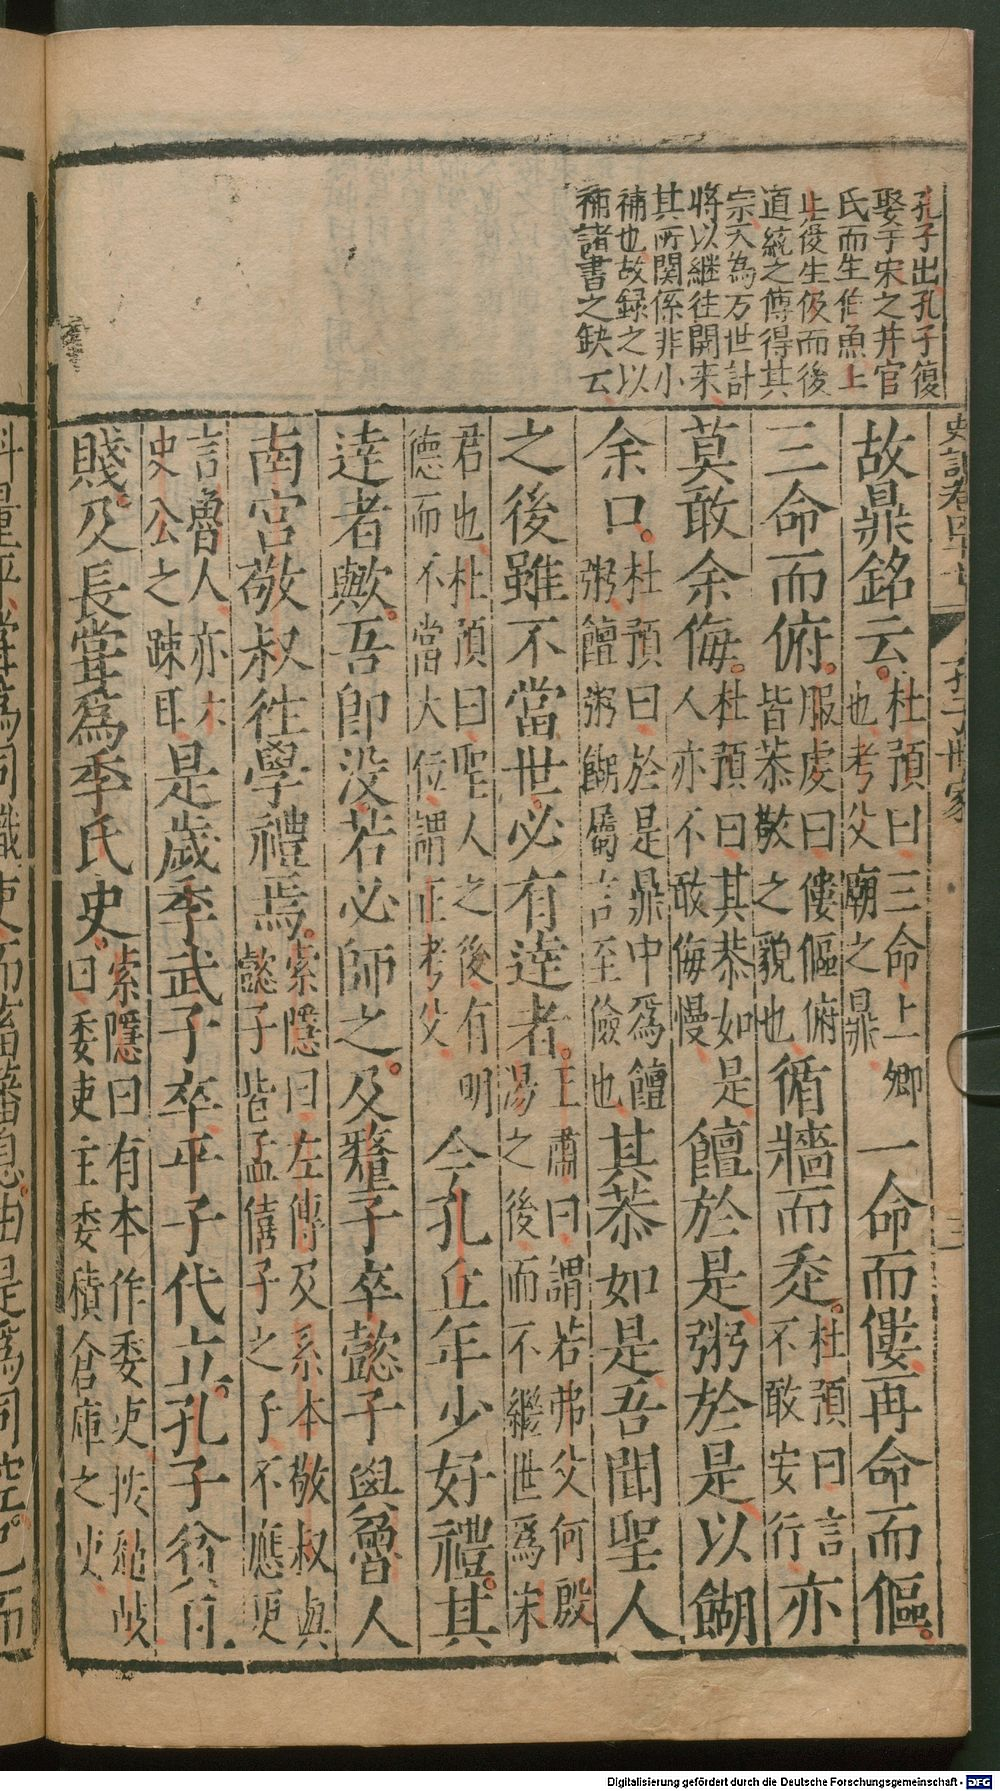 孔子出孔子復
娶于宋之幷官
氏而生伯魚上
道統之傳得其
宗大為万世計
將以継徃開来
其所関係非小
補也故録之以
補諸書之缺云
史記卷四十七
孔子世家
三
故鼎銘云杜預曰三命上卿也考父廟之鼎一命而僂再命而傴
三命而俯服虔曰僂傴俯皆恭敬之貌也循牆而走杜預曰言不敢安行亦
莫敢余侮杜預曰其恭如是人亦不敢侮慢饘於是粥於是以餬
余口杜預曰於是鼎中為饘粥饘粥餬屬言至儉也其恭如是吾聞聖人
之後雖不當世必有達者王肅曰謂若弗父何殷湯之後而不繼世爲宋
君也杜預曰聖人之後有明德而不當大位謂正考父今孔丘年少好禮其
達者歟吾即没若必師之及釐子卒懿子與魯人
南宮敬叔徃學禮焉索隱曰左傳及系本敬叔與懿子皆孟僖子之子不應更
言魯人亦太史公之疎耳是歲季武子卒平子代立孔子貧且
賤及長嘗爲季氏史索隱曰有本作委吏按趙岐曰委吏主委積倉庫之吏
Digitalisierung gefördert durch die Deutsche Forschungsgemeinschaft - DFG